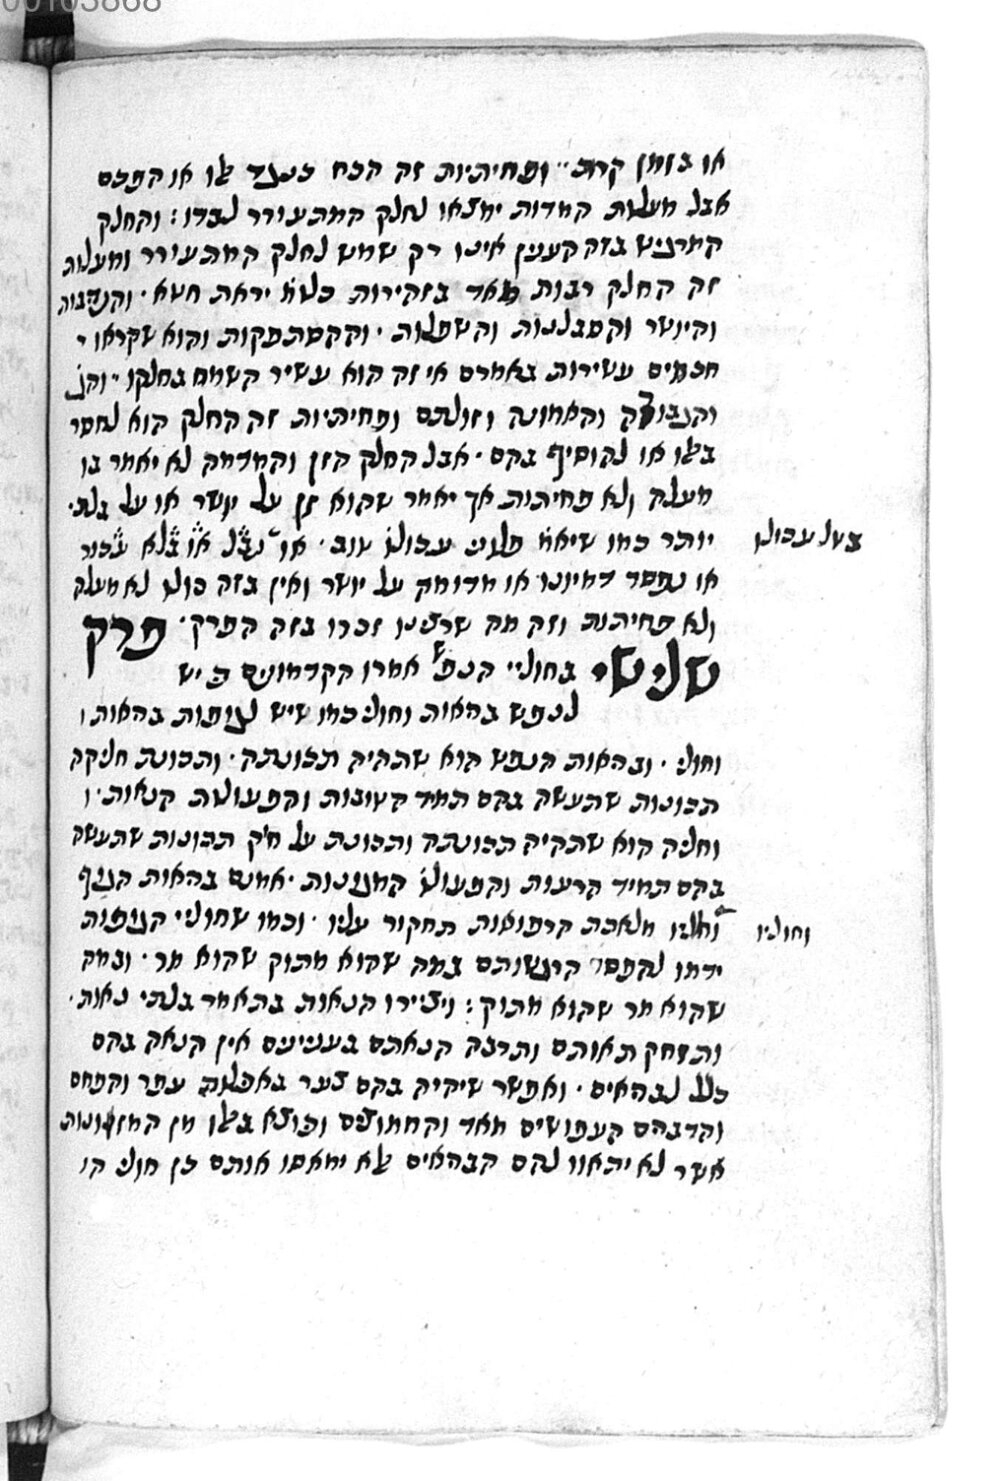 00103868
או בזמן קרוב ופחיתיות זה הכח כנגד אלו או הפכם
אבל מעלות המדות ימצאו לחלק המתעורר לבדו : והחלק
המרגיש בזה הענין אינו רק שמש לחלק המתעורר ומעלות
זה החלק רבות מאד בזהירות כלומ' יראת חטא · והנדיבות
והיושר והסבלנות והשפלות · וההסתפקות והוא שקראו ר
חכמים עשירות באמרם אי זה הוא עשיר השמח בחלקו
והגבורה והאמונה וזולתם ופחיתיות זה החלק הוא לחסר
באלו או להוסיף בהם · אבל החלק הזן והמדמה לא יאמר בו
מעלה ולא פחיתות אך יאמר שהוא זן על יושר או על בלתי
יותר כמו שיאמ' פלוני עכולו טוב · או נבטל או בלא עכול
או נפסד דמיונו או מדומה על יושר ואין בזה כולו לא מעלה
ולא פחיתות וזה מה שרצינו זכרו בזה הפרק · פרק
שלישי בחוליי הנפש אמרו הקדמונים כי יש
לנפש בהאות וחולי כמו שיש לגופות בהאות ו
וחולי · ובהאות הנפש הוא שתהיה תכונתה · ותכונת חלקה
תכונות שתעשה בהם תמיד הטובות והפעולות הנאות · ו
וחליה הוא שתהיה תכונתה ותכונת על חיק תכונות שתעשה
בהם תמיד הרעות והפעולו' המגונות · אמנם בהאות הגוף
וחליו מלאכת הרפואות תחקור עליו · וכמו שחוליי הגופות
ידמו להפסד הרגשותם במה שהוא מתוק שהוא מר · ובמה
שהוא מר שהוא מתוק : ויציירו הנאות בתאמר בלתי נאות ·
ותחזק תאותם ותרבה הנאתם בענינים אין הנאה בהם
כלל לבהאים · ואפשר שיהיה בהם צער באכלות עפר והפחם
והדברים העפושים מאד והחמוצים וכיוצא באלו מן המזונות
אשר לא יתאוו להם הבהאים אלא ימאסו אותם כן חולי הו
בטל עכולו
וחוליו